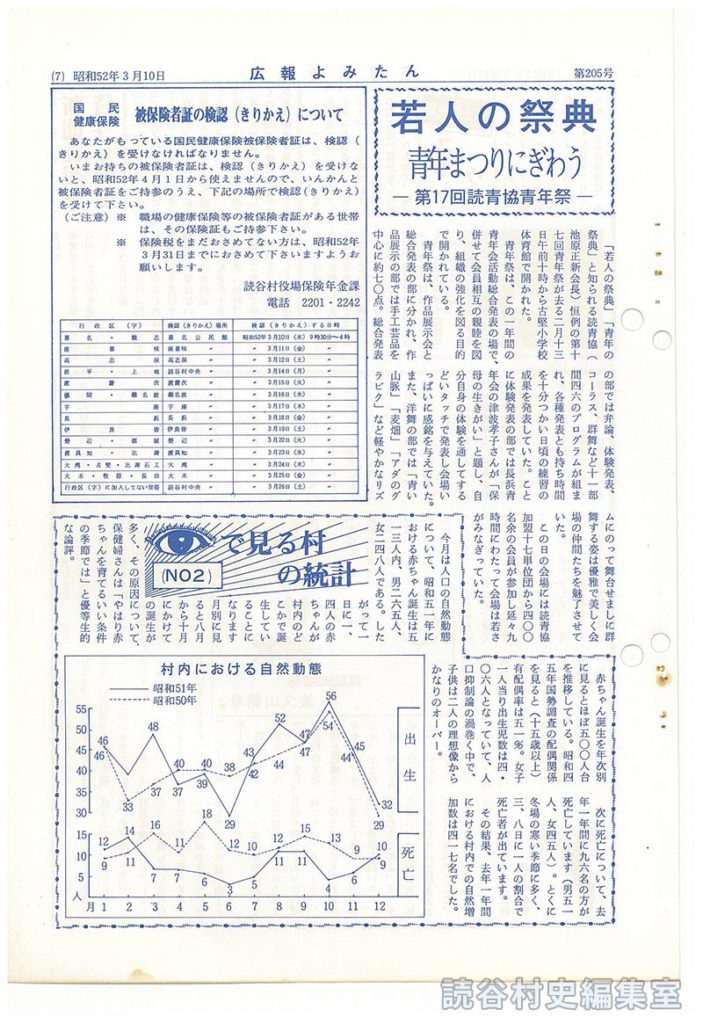 (7) 昭和52年3月10日
広報よみたん
第205号
国民
健康保険
被保険者証の検認(きりかえ)について
あなたがもっている国民健康保険被保険者証は、検認(
きりかえ)を受けなければなりません。
いまお持ちの被保険者証は、検認(きりかえ)を受けな
いと、昭和52年4月1日から使えませんので、いんかんと
被保険者証をご持参のうえ、下記の場所で検認(きりかえ)
を受けて下さい。
(ご注意) ※ 職場の健康保険等の被保険者証がある世帯
は、その保険証もご持参下さい。
※ 保険税をまだおさめてない方は、昭和52年
3月31日までにおさめて下さいますようお
願いします。
読谷村役場保険年金課
電話 2201・2242
行政区(字) 検認(きりかえ)場所 検認(きりかえ)する日時
喜名・親志 喜名公民館 昭和52年3月10日(木)9時30分〜4時
座喜味 座喜味〃 〃 3月11日(金) 〃
高志保 高志保〃 〃 3月12日(土) 〃
波平・上地 読谷村中央〃 〃 3月14日(月) 〃
渡慶次 渡慶次〃 〃 3月15日(火) 〃
儀間・瀬名波 瀬名波〃 〃 3月16日(水) 〃
宇座 宇座〃 〃 3月17日(木) 〃
長浜 長浜〃 〃 3月18日(金) 〃
伊良皆 伊良皆〃 〃 3月19日(土) 〃
楚辺・都屋 楚辺〃 〃 3月22日(火) 〃
渡具知・比謝 渡具知〃 〃 3月23日(水) 〃
大湾・古堅・比謝矼 大湾〃 〃 3月24日(木) 〃
大木・牧原・長田 大木〃 〃 3月25日(金) 〃
行政区(字)に加入してない世帯 読谷村中央〃 〃 3月26日(土) 〃
若人の祭典
青年まつりにぎわう
―第17回読青協青年祭―
「若人の祭典」「青年の
祭典」と知られる読青協(
池原正新会長)恒例の第十
七回青年祭が去る二月十三
日午前十時から古堅小学校
体育館で開かれた。
青年祭は、この一年間の
青年会活動総合発表の場で、
併せて会員相互の親睦を図
り、組織の強化を図る目的
で開かれている。
青年祭は、作品展示会と
総合発表の部に分かれ、作
品展示の部では手工芸品を
中心に約七〇点。総合発表
の部では弁論、体験発表、
コーラス、群舞など十一部
間四六のプログラムが組ま
れ、各種発表とも持ち時間
を十分つかい日頃の練習の
成果を発表していた。こと
に体験発表の部では長浜青
年会の津波孝子さんが「保
母の生きがい」と題し、自
分自身の体験を通してする
どいタッチで発表し会場い
っぱいに感銘を与えていた。
また、洋舞の部では「青い
山脈」「麦畑」「アダのグ
ラビク」など軽やかなリズ
ムにのって舞台せましに群
舞する姿は優雅で美しく会
場の仲間たちを魅了させて
いた。
この日の会場には読青協
加盟十七単位団から四〇〇
名余の会員が参加し延々九
時間にわたって会場は若さ
がみなぎっていた。
で見る村
の統計
(NO2)
今月は人口の自然動態
について、昭和五一年に
おける赤ちゃん誕生は五
一三人内、男二六五人、
女二四八人である。した
がって一
日に一、
四人の赤
ちゃんが
村内のど
こかで誕
生してい
ることに
なります
月別に見
ると八月
から十月
にかけて
の誕生が
多く、その原因について、
保健婦さんは「やはり赤
ちゃんを育てるいい条件
の季節では」と優等生的
な論評。
赤ちゃん誕生を年次別
に見るとほぼ五〇〇人台
を推移している。昭和四
五年国勢調査の配偶関係
を見ると(十五歳以上)
有配偶率は五一%。女子
一人当り出生児数は四・
〇六人となっていて、人
口抑制論の渦巻く中で、
子供は二人の理想像から
かなりのオーバー。
次に死亡について、去
年一年間に九六名の方が
死亡しています(男五一
人、女四五人)。とくに
冬場の寒い季節に多く、
三、八日に一人の割合で
死亡者が出ています。
その結果、去年一年間
における村内での自然増
加数は四一七名でした。
村内における自然動態
昭和51年
昭和50年
出生
死亡
55
50
45
40
35
30
15
10
5
人
46 46 33 48 37 40 37 40 39 38 29 43 42 52 44 47 47 56 54 44 45 32 29
12 9 14 11 16 7 11 7 18 6 12 3 10 5 12 11 15 11 13 4 9 6 10 9
月 1 2 3 4 5 6 7 8 9 10 11 12
読谷村史編集室